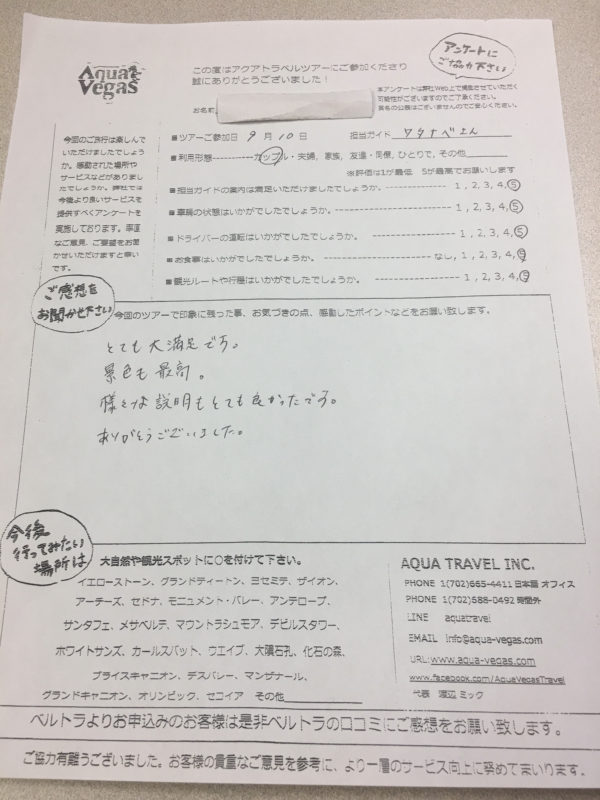 Aqua Vegas
この度はアクアトラベルツアーにご参加くださり
誠にありがとうございました！
アンケートに
ご協力下さい
本アンケートは弊社Web上で掲載させていただく
可能性がございますのでご了承ください。
実名の公表はございませんのでご安心ください。
お名前
今回のご旅行は楽しんで
いただけましたでしょう
か。感動された場所や
サービスなどがありまし
たでしょうか。弊社では
今後より良いサービスを
提供すべくアンケートを
実施しております。率直
なご意見、ご要望をお聞
かせいただけますと幸い
です。
■ツアーご参加日 9月10日 担当ガイド ワタナベさん
■利用形態-----------カップル・夫婦, 家族, 友達・同僚, ひとりで, その他
※評価は1が最低 5が最高でお願いします
■担当ガイドの案内は満足いただけましたでしょうか。 1, 2, 3, 4, 5
■車輌の状態はいかがでしたでしょうか。 1, 2, 3, 4, 5
■ドライバーの運転はいかがでしたでしょうか。 1, 2, 3, 4, 5
■お食事はいかがでしたでしょうか。 なし, 1, 2, 3, 4, 5
■観光ルートや行程はいかがでしたでしょうか。 1, 2, 3, 4, 5
ご感想を
お聞かせ下さい
今回のツアーで印象に残った事、お気づきの点、感動したポイントなどをお願い致します。
とても大満足です。
景色も最高。
様々な説明もとても良かったです。
ありがとうございました。
今後
行ってみたい
場所は
大自然や観光スポットに○を付けて下さい。
イエローストーン、グランドティートン、ヨセミテ、ザイオン、
アーチーズ、セドナ、モニュメント・バレー、アンテロープ、
サンタフェ、メサベルテ、マウントラシュモア、デビルスタワー、
ホワイトサンズ、カールスバット、ウエイブ、大隕石孔、化石の森、
ブライスキャニオン、デスバレー、マンザナール、
グランドキャニオン、オリンピック、セコイア その他
AQUA TRAVEL INC.
PHONE 1(702)665-4411 日本語 オフィス
PHONE 1(702)588-0492 時間外
LINE aquatravel
EMAIL info@aqua-vegas.com
URL: www.aqua-vegas.com
www.facebook.com/AquaVegasTravel
代表 渡辺 ミック
ベルトラよりお申込みのお客様は是非ベルトラの口コミにご感想をお願い致します。
ご協力有難うございました。お客様の貴重なご意見を参考に、より一層のサービス向上に努めてまいります。